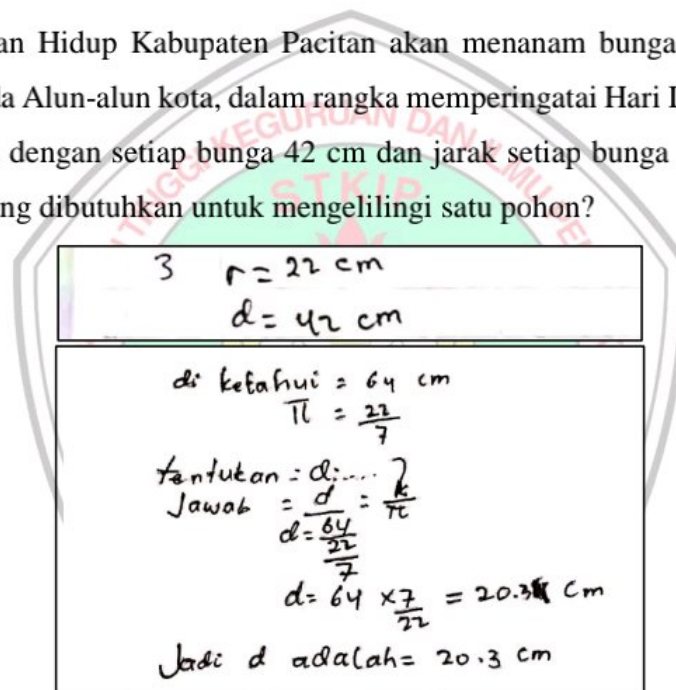 an Hidup Kabupaten Pacitan akan menanam bunga
a Alun-alun kota, dalam rangka memperingatai Hari
dengan setiap bunga 42 cm dan jarak setiap bunga
ng dibutuhkan untuk mengelilingi satu pohon?
TINGGI KEGURUAN DAN ILMU
STKIP
3 r = 22 cm
d = 42 cm
di ketahui = 64 cm
π = 22/7
tentukan = d:....?
Jawab = d = k/π
d = 64/22/7
d = 64 × 7/22 = 20.3 cm
Jadi d adalah = 20.3 cm